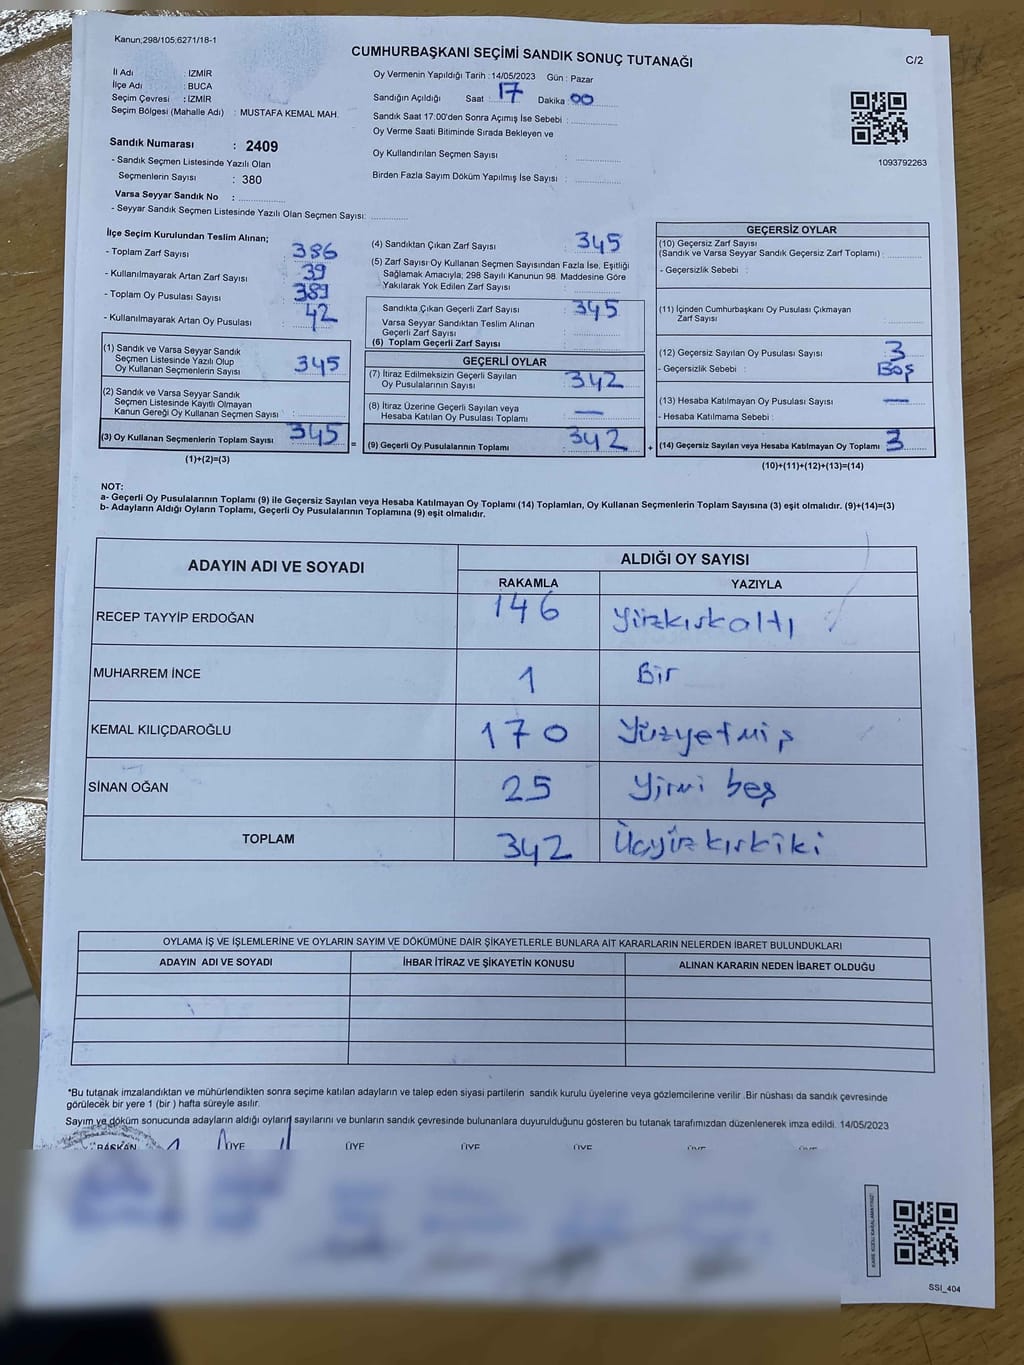 Kanun;298/105;6271/18-1
CUMHURBAŞKANI SEÇİMİ SANDIK SONUÇ TUTANAĞI
C/2
İl Adı : İZMİR
İlçe Adı : BUCA
Seçim Çevresi : İZMİR
Seçim Bölgesi (Mahalle Adı) : MUSTAFA KEMAL MAH.
Sandık Numarası : 2409
- Sandık Seçmen Listesinde Yazılı Olan
Seçmenlerin Sayısı : 380
Varsa Seyyar Sandık No :
- Seyyar Sandık Seçmen Listesinde Yazılı Olan Seçmen Sayısı:
Oy Vermenin Yapıldığı Tarih : 14/05/2023 Gün : Pazar
Sandığın Açıldığı Saat : 17 Dakika : 00
Sandık Saat 17:00'den Sonra Açımış İse Sebebi :
Oy Verme Saati Bitiminde Sırada Bekleyen ve
Oy Kullandırılan Seçmen Sayısı :
Birden Fazla Sayım Döküm Yapılmış İse Sayısı :
1093792263
İlçe Seçim Kurulundan Teslim Alınan;
- Toplam Zarf Sayısı : 386
- Kullanılmayarak Artan Zarf Sayısı : 39
- Toplam Oy Pusulası Sayısı : 389
- Kullanılmayarak Artan Oy Pusulası : 42
(1) Sandık ve Varsa Seyyar Sandık
Seçmen Listesinde Yazılı Olup
Oy Kullanan Seçmenlerin Sayısı : 345
(2) Sandık ve Varsa Seyyar Sandık
Seçmen Listesinde Kayıtlı Olmayan
Kanun Gereği Oy Kullanan Seçmen Sayısı :
(3) Oy Kullanan Seçmenlerin Toplam Sayısı : 345 =
(1)+(2)=(3)
(4) Sandıktan Çıkan Zarf Sayısı : 345
(5) Zarf Sayısı Oy Kullanan Seçmen Sayısından Fazla İse, Eşitliği
Sağlamak Amacıyla, 298 Sayılı Kanunun 98. Maddesine Göre
Yakılarak Yok Edilen Zarf Sayısı :
Sandıkta Çıkan Geçerli Zarf Sayısı : 345
Varsa Seyyar Sandıktan Teslim Alınan
Geçerli Zarf Sayısı :
(6) Toplam Geçerli Zarf Sayısı :
GEÇERLİ OYLAR
(7) İtiraz Edilmeksizin Geçerli Sayılan
Oy Pusulalarının Sayısı : 342
(8) İtiraz Üzerine Geçerli Sayılan veya
Hesaba Katılan Oy Pusulası Toplamı : —
(9) Geçerli Oy Pusulalarının Toplamı : 342 +
GEÇERSİZ OYLAR
(10) Geçersiz Zarf Sayısı
(Sandık ve Varsa Seyyar Sandık Geçersiz Zarf Toplamı) :
- Geçersizlik Sebebi :
(11) İçinden Cumhurbaşkanı Oy Pusulası Çıkmayan
Zarf Sayısı :
(12) Geçersiz Sayılan Oy Pusulası Sayısı : 3
- Geçersizlik Sebebi : Boş
(13) Hesaba Katılmayan Oy Pusulası Sayısı : —
- Hesaba Katılmama Sebebi :
(14) Geçersiz Sayılan veya Hesaba Katılmayan Oy Toplamı : 3
(10)+(11)+(12)+(13)=(14)
NOT:
a- Geçerli Oy Pusulalarının Toplamı (9) ile Geçersiz Sayılan veya Hesaba Katılmayan Oy Toplamı (14) Toplamları, Oy Kullanan Seçmenlerin Toplam Sayısına (3) eşit olmalıdır. (9)+(14)=(3)
b- Adayların Aldığı Oyların Toplamı, Geçerli Oy Pusulalarının Toplamına (9) eşit olmalıdır.
ADAYIN ADI VE SOYADI
ALDIĞI OY SAYISI
RAKAMLA YAZIYLA
RECEP TAYYİP ERDOĞAN 146 Yüzkırkaltı
MUHARREM İNCE 1 Bir
KEMAL KILIÇDAROĞLU 170 Yüzyetmiş
SİNAN OĞAN 25 Yirmi beş
TOPLAM 342 Üçyüzkırkiki
OYLAMA İŞ VE İŞLEMLERİNE VE OYLARIN SAYIM VE DÖKÜMÜNE DAİR ŞİKAYETLERLE BUNLARA AİT KARARLARIN NELERDEN İBARET BULUNDUKLARI
ADAYIN ADI VE SOYADI İHBAR İTİRAZ VE ŞİKAYETİN KONUSU ALINAN KARARIN NEDEN İBARET OLDUĞU
*Bu tutanak imzalandıktan ve mühürlendikten sonra seçime katılan adayların ve talep eden siyasi partilerin sandık kurulu üyelerine veya gözlemcilerine verilir .Bir nüshası da sandık çevresinde
görülecek bir yere 1 (bir ) hafta süreyle asılır.
Sayım ve döküm sonucunda adayların aldığı oyların sayılarını ve bunların sandık çevresinde bulunanlara duyurulduğunu gösteren bu tutanak tarafımızdan düzenlenerek imza edildi. 14/05/2023
BAŞKAN ÜYE ÜYE ÜYE ÜYE ÜYE ÜYE
SSI_404